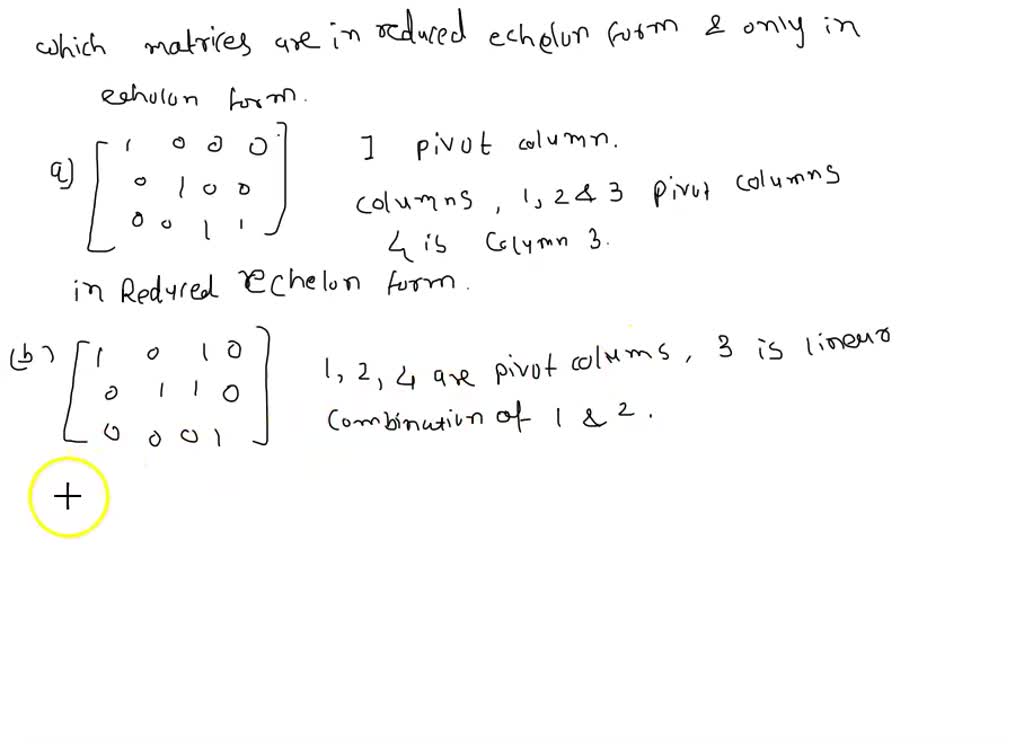 which matrices are in reduced echelon form & only in
echulon form.
a) [ 1 0 0 0 ] ] pivot column.
0 1 0 0 columns, 1, 2 & 3 pivot columns
0 0 1 1 4 is Column 3.
in Reduced Echelon form.
(b) [ 1 0 1 0 ]
0 1 1 0 1, 2, 4 are pivot colums, 3 is linear
0 0 0 1 combination of 1 & 2.